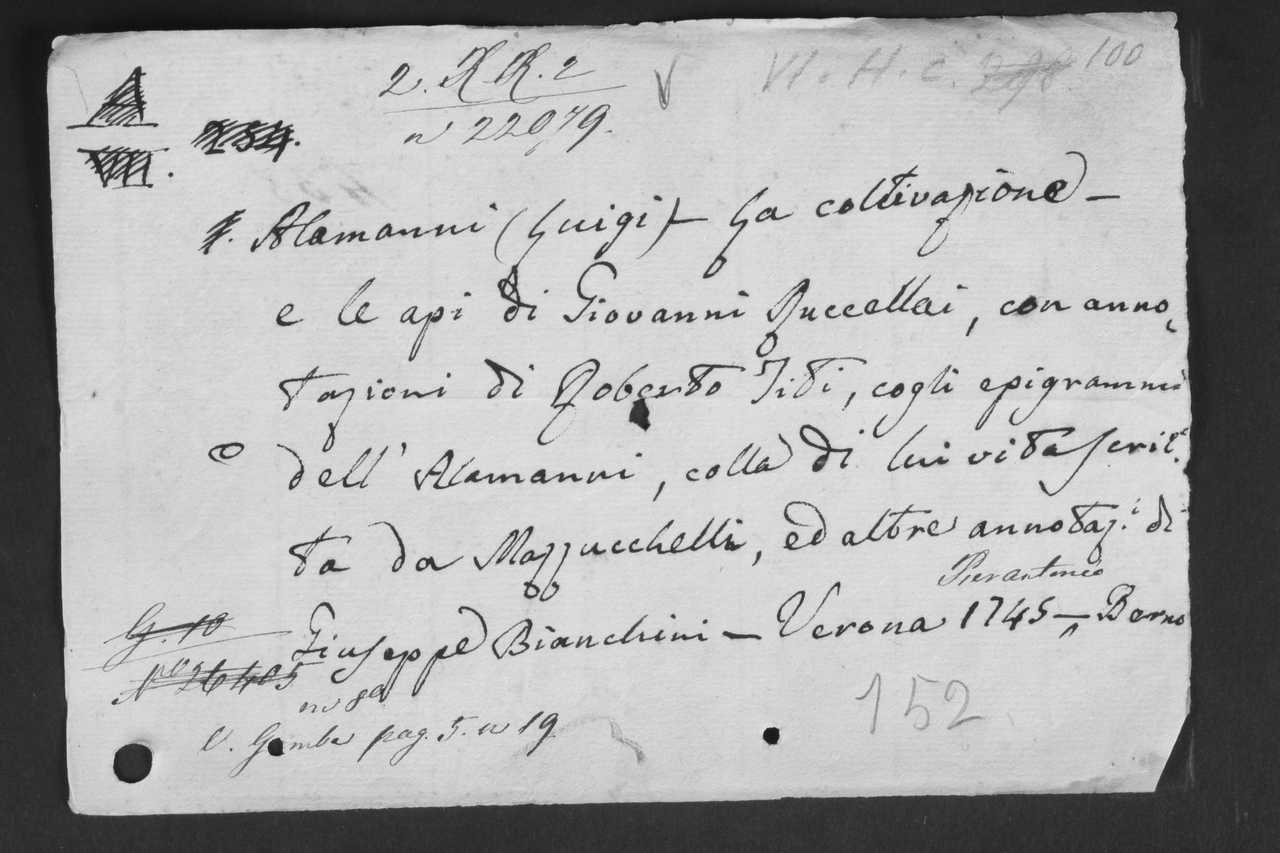 2. R R. 2
n 22079.
VI. H. c. 298. 100
A
VII. 234.
Alamanni (Luigi) – La coltivazione –
e le api di Giovanni Ruccellai, con anno,
tazioni di Roberto Titi, cogli epigrammi
dell' Alamanni, colla di lui vita scrit,
ta da Mazzucchelli, ed altre annotaz.i di
Pierantonio
Giuseppe Bianchini – Verona 1745 – Berno
G. 10
N.ro 26405
in 8º
V. Gamba pag. 5. n 19
152.